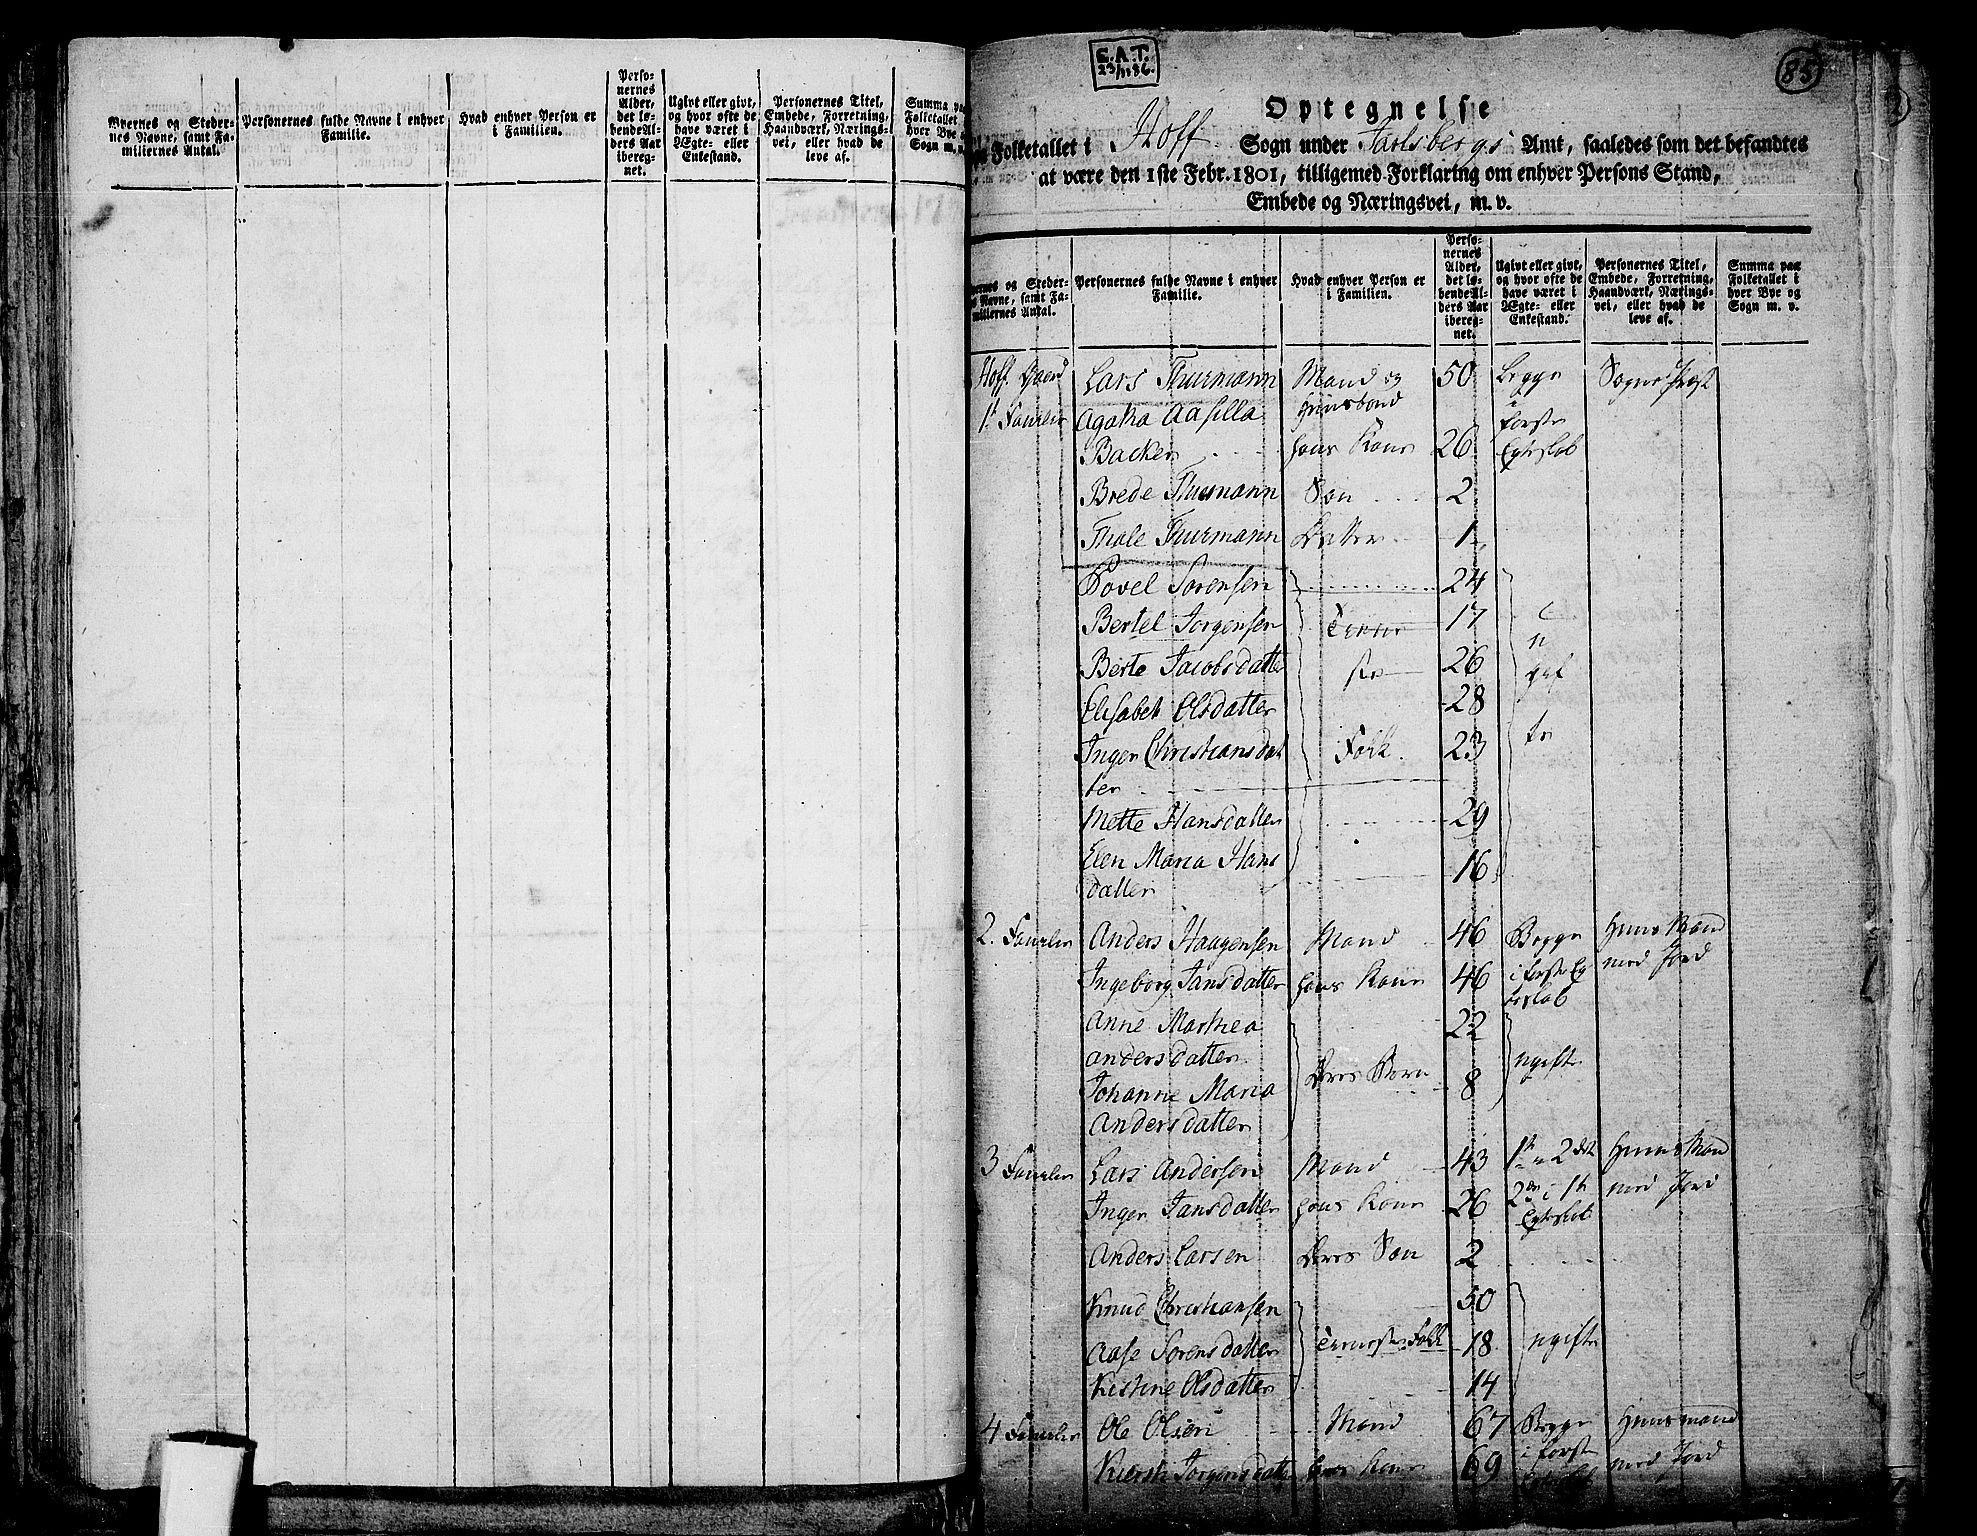 Byernes og Steder-
nes Navne, samt Fa-
miliernes Antal.
Personernes fulde Navne i enhver
Familie.
Hvad enhver Person er
i Familien.
Perso-
nernes
Alder,
det lø-
bende Al-
ders Aar
ibereg-
net.
Ugivt eller givt,
og hvor ofte de
have været i
Ægte- eller
Enkestand.
Personernes Titel,
Embede, Forretning,
Haandværk, Nærings-
vei, eller hvad de
leve af.
Summa paa
Folketallet i
hver Bye og
Sogn m. v.
E.A.T.
85
Optegnelse
Folketallet i Hoff Sogn under Jarlsbergs Amt, saaledes som det befandtes
at være den 1ste Febr. 1801, tilligemed Forklaring om enhver Persons Stand,
Embede og Næringsvei, m. v.
ernes og Steder-
s Navne, samt Fa-
miliernes Antal.
Personernes fulde Navne i enhver
Familie.
Hvad enhver Person er
i Familien.
Perso-
nernes
Alder,
det lø-
bende Al-
ders Aar
ibereg-
net.
Ugivt eller givt,
og hvor ofte de
have været i
Ægte- eller
Enkestand.
Personernes Titel,
Embede, Forretning,
Haandværk, Nærings-
vei, eller hvad de
leve af.
Summa paa
Folketallet i
hver Bye og
Sogn m. v.
Hoff Gaard Lars Thurmann Mand og 50 Begge Sognepræst
1t Familie Agatha Aasilla Huusbond i første
Backer hans Kone 26 Egteskab
Brede Thurmann Søn 2
Thale Thurmann Datter 1
Povel Sørensen 24
Bertel Jørgensen Tiene 17 u
Berte Jacobsdatter ste 26 gif
Elisabet Olsdatter 28
Inger Christiansdat Folk. 23 te
ter
Mette Hansdatter 29
Elen Maria Hans 16
datter
2. Familie Anders Haagensen Mand 46 Begge Huusmand
Ingeborg Jansdatter hans Kone 46 i første Eg med Jord
teskab
Anne Marthea 22
Andersdatter ugifte
Johanne Maria Deres Børn 8
Andersdatter
3 Familie Lars Andersen Mand 43 1st i 2det Huusmand
Inger Jansdatter hans Kone 26 2den i 1st med Jord
Egteskab
Anders Larsen Deres Søn 2
Knud Christiansen 50
Aase Sørensdatter Tieneste Folk 18 ugifte
Kistine Olsdatter 14
4 Familie Ole Olsen Mand 67 Begge Huusmand
Kiersti Jørgensdatter hans Kone 69 i første med Jord
Egteskab